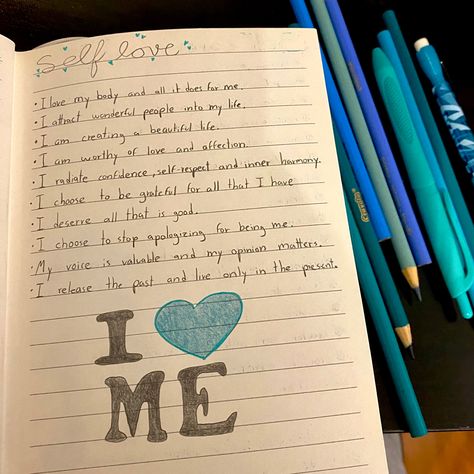 self love
· I love my body and all it does for me.
· I attract wonderful people into my life.
· I am creating a beautiful life.
· I am worthy of love and affection.
· I radiate confidence, self-respect and inner harmony.
· I choose to be grateful for all that I have
· I deserve all that is good.
· I choose to stop apologizing for being me.
· My voice is valuable and my opinion matters.
· I release the past and live only in the present.
I
ME